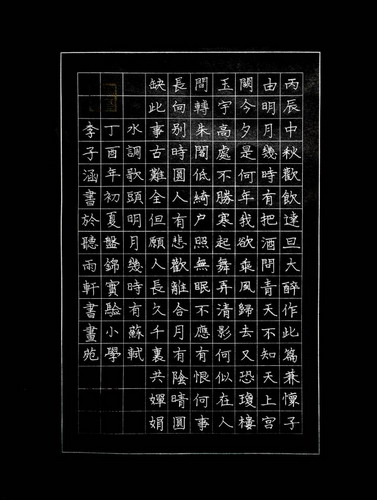 丙辰中秋歡飲達旦大醉作此篇兼懷子
由明月幾時有把酒問青天不知天上宮
闕今夕是何年我欲乘風歸去又恐瓊樓
玉宇高處不勝寒起舞弄清影何似在人
間轉朱閣低綺户照無眠不應有恨何事
長向別時圓人有悲歡離合月有陰晴圓
缺此事古難全但願人長久千裏共嬋娟
水調歌頭明月幾時有蘇軾
丁酉年初夏盤錦實驗小學
李子涵書於聽雨軒書畫苑